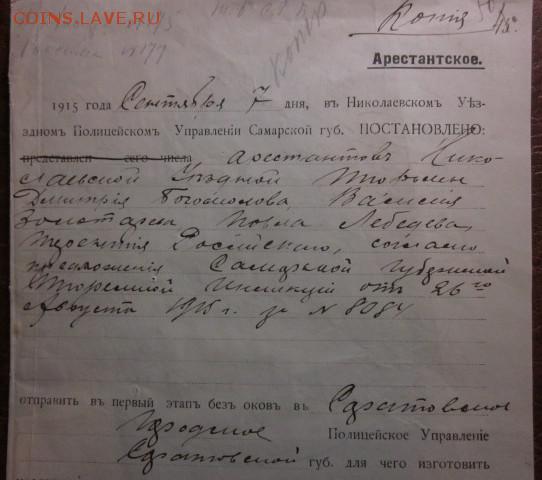 COINS.LAVE.RU
Копія
копія
Арестантское.
1915 года Сентября 7 дня, въ Николаевскомъ Уѣз-
дномъ Полицейскомъ Управленіи Самарской губ. ПОСТАНОВЛЕНО:
представляя сего числа арестантовъ Нико-
лаевской Уѣздной тюрьмы
Дмитрія Богомолова Василія
Золотарева Павла Лебедева,
Терентія Россійскаго, согласно
предложенія Самарской Губернской
Тюремной Инспекціи отъ 26 го
Августа 1915 г. за № 8084
отправить въ первый этап безъ оковъ въ Саратовское
Городское Полицейское Управленіе
Саратовской губ. для чего изготовить